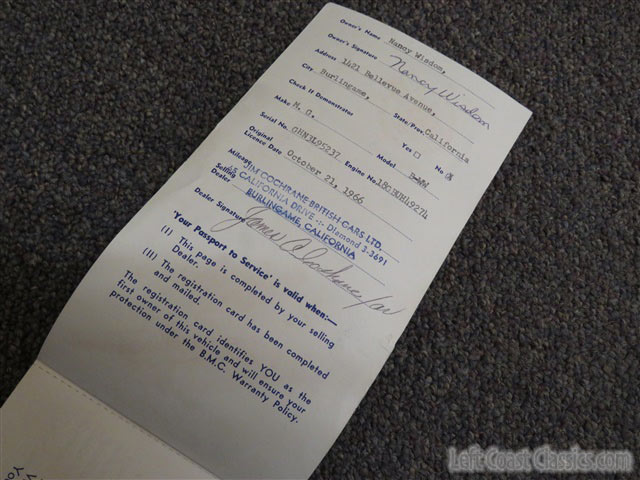 Owner's Name Nancy Wisdom,
Owner's Signature Nancy Wisdom
Address 1421 Bellevue Avenue,
City Burlingame, State/Prov. California
Check If Demonstrator Yes No
Make M. G. Model
Serial No. Engine No.
Original Licence Date October 21, 1966
Mileage
Selling Dealer JIM COCHRANE BRITISH CARS LTD.
CALIFORNIA DRIVE -:- Diamond 3-3691
BURLINGAME, CALIFORNIA
Dealer Signature James Cochrane
'Your Passport to Service' is valid when:—
(I) This page is completed by your selling
Dealer.
(II) The registration card has been completed
and mailed.
The registration card identifies YOU as the
first owner of this vehicle and will ensure your
protection under the B.M.C. Warranty Policy.
Left Coast Classics.com